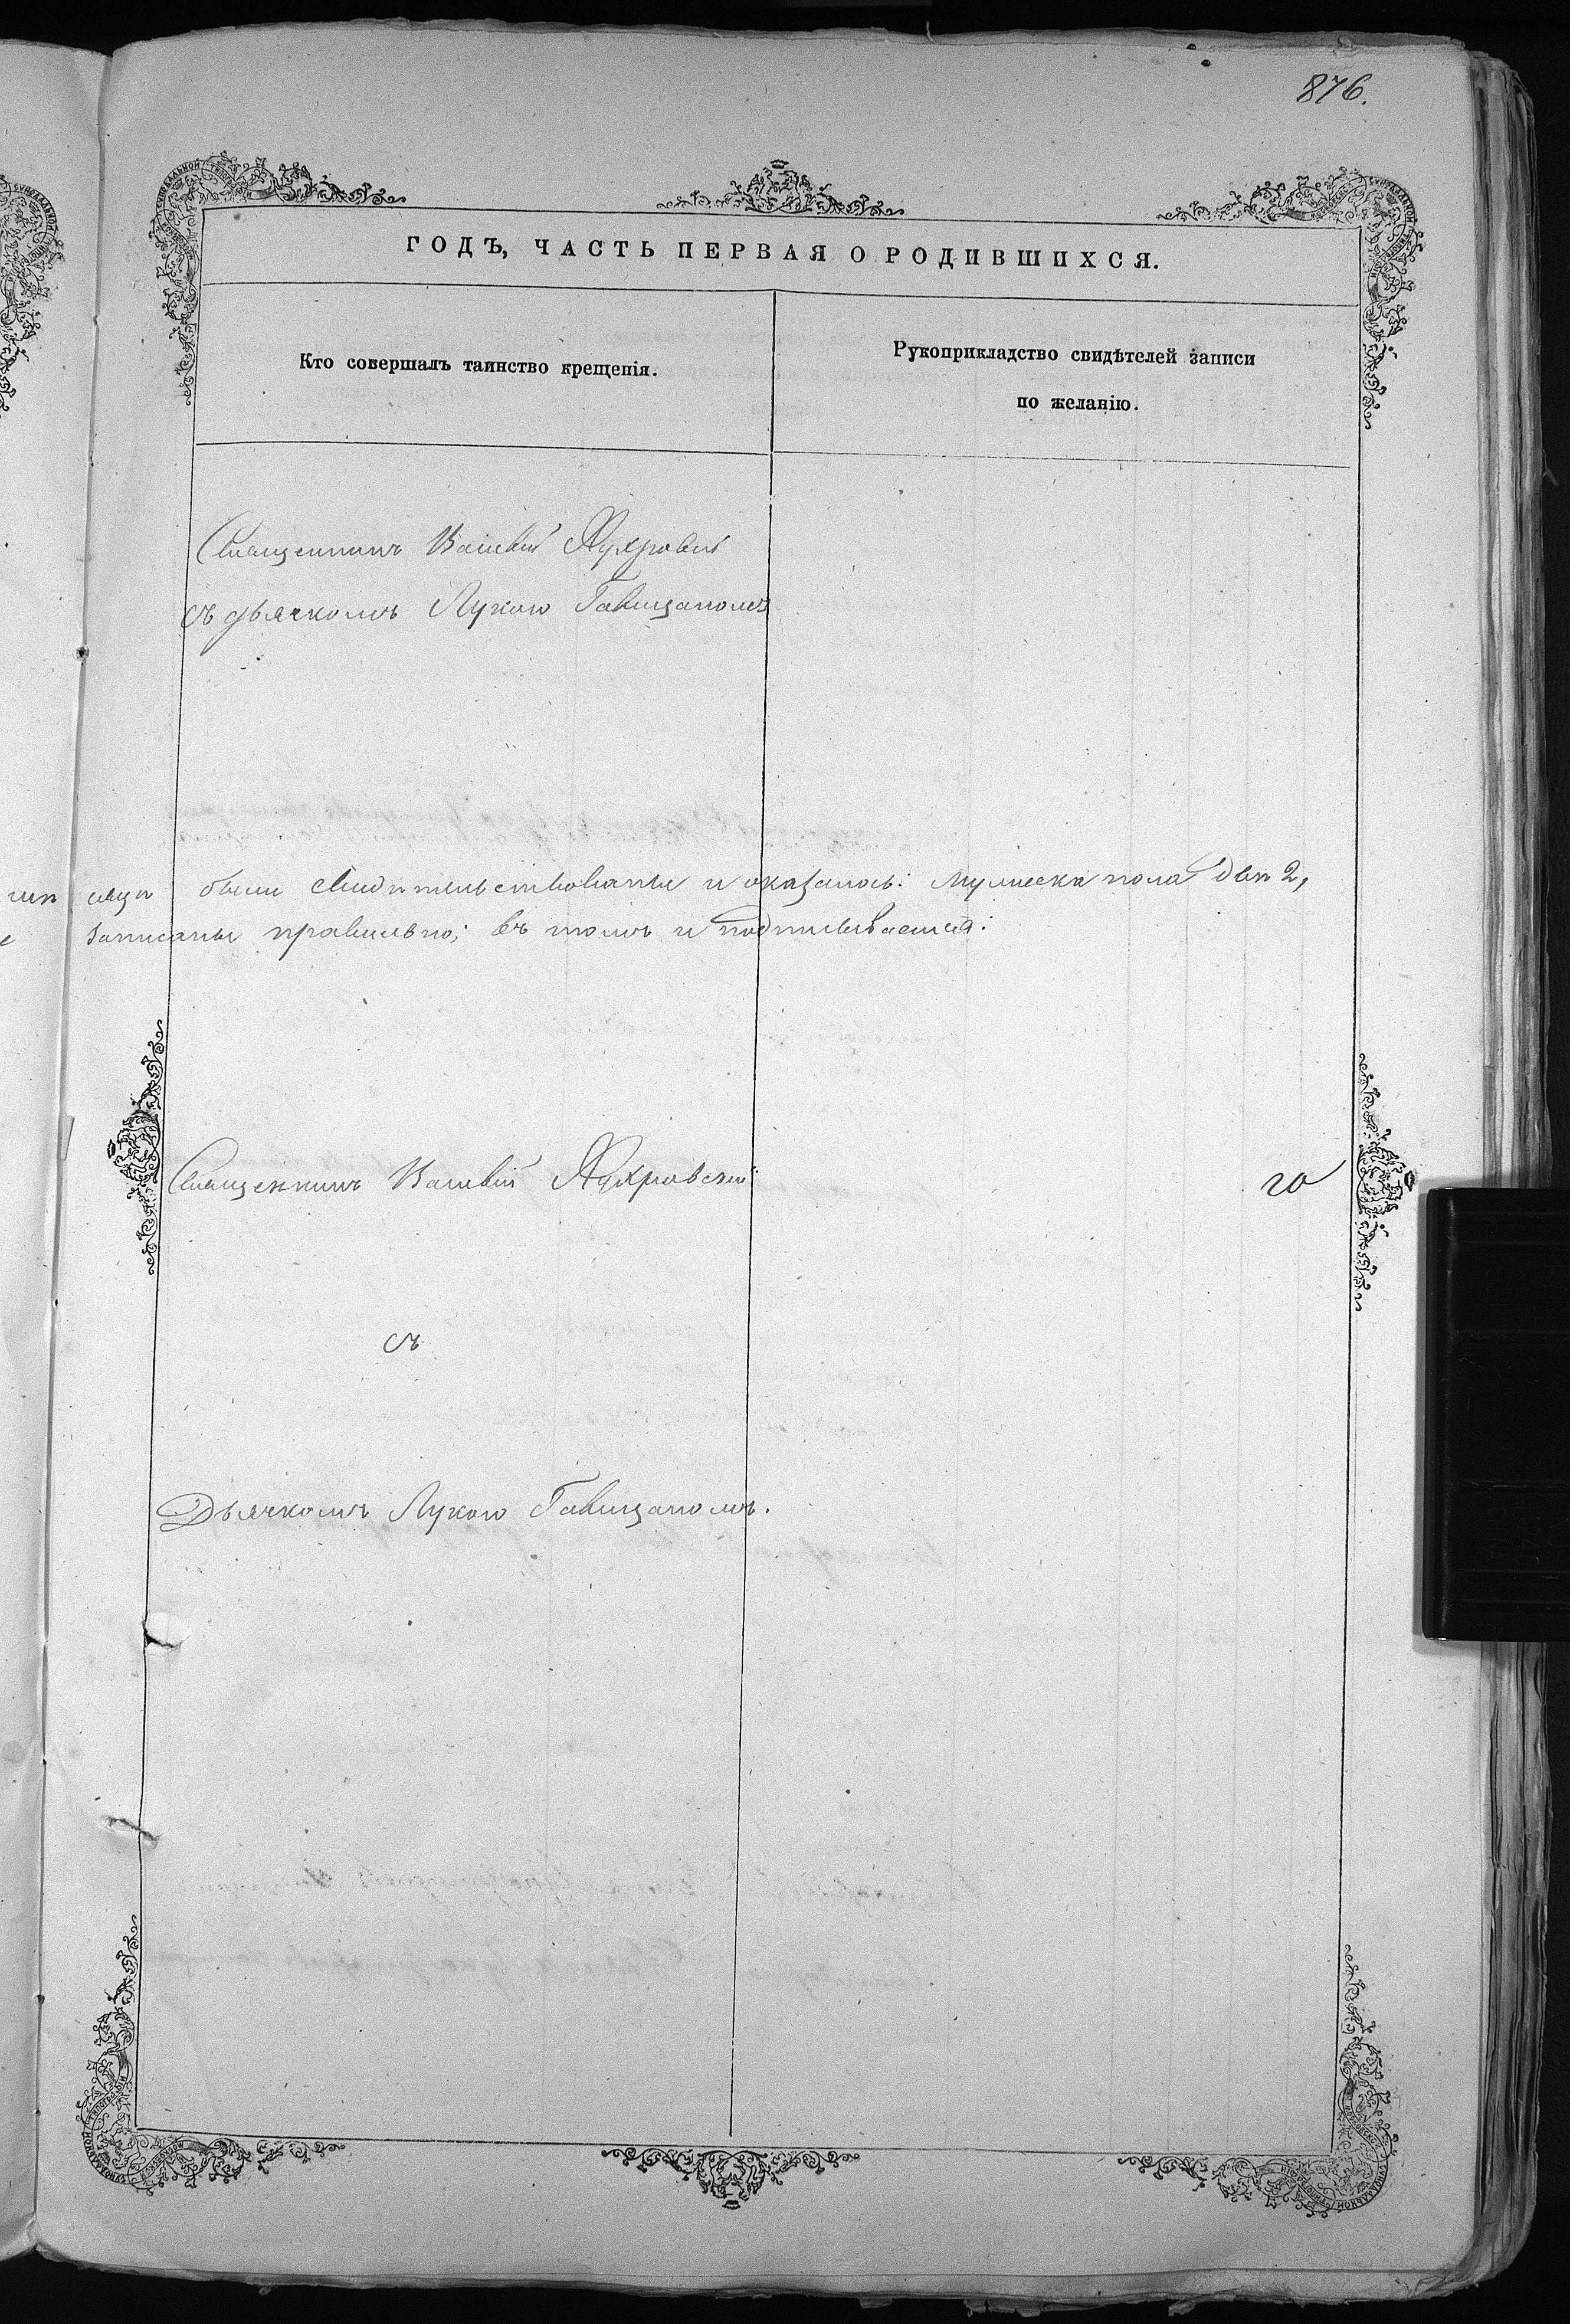 876.
ГОДЪ, ЧАСТЬ ПЕРВАЯ О РОДИВШИХСЯ.
Кто совершалъ таинство крещенія.
Рукоприкладство свидѣтелей записи
по желанію.
Священникъ Василій
съ дьячкомъ Лукою
были свидѣтельствованы и оказалось: мужеска пола два 2,
записаны правильно; въ томъ и подписываемся:
Священникъ Василій
съ
Дьячкомъ Лукою